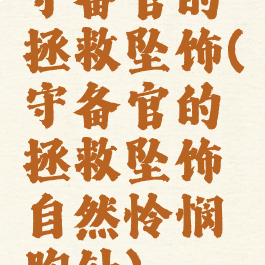 守备官的
拯救坠饰(
守备官的
拯救坠饰
自然怜悯
胸针)